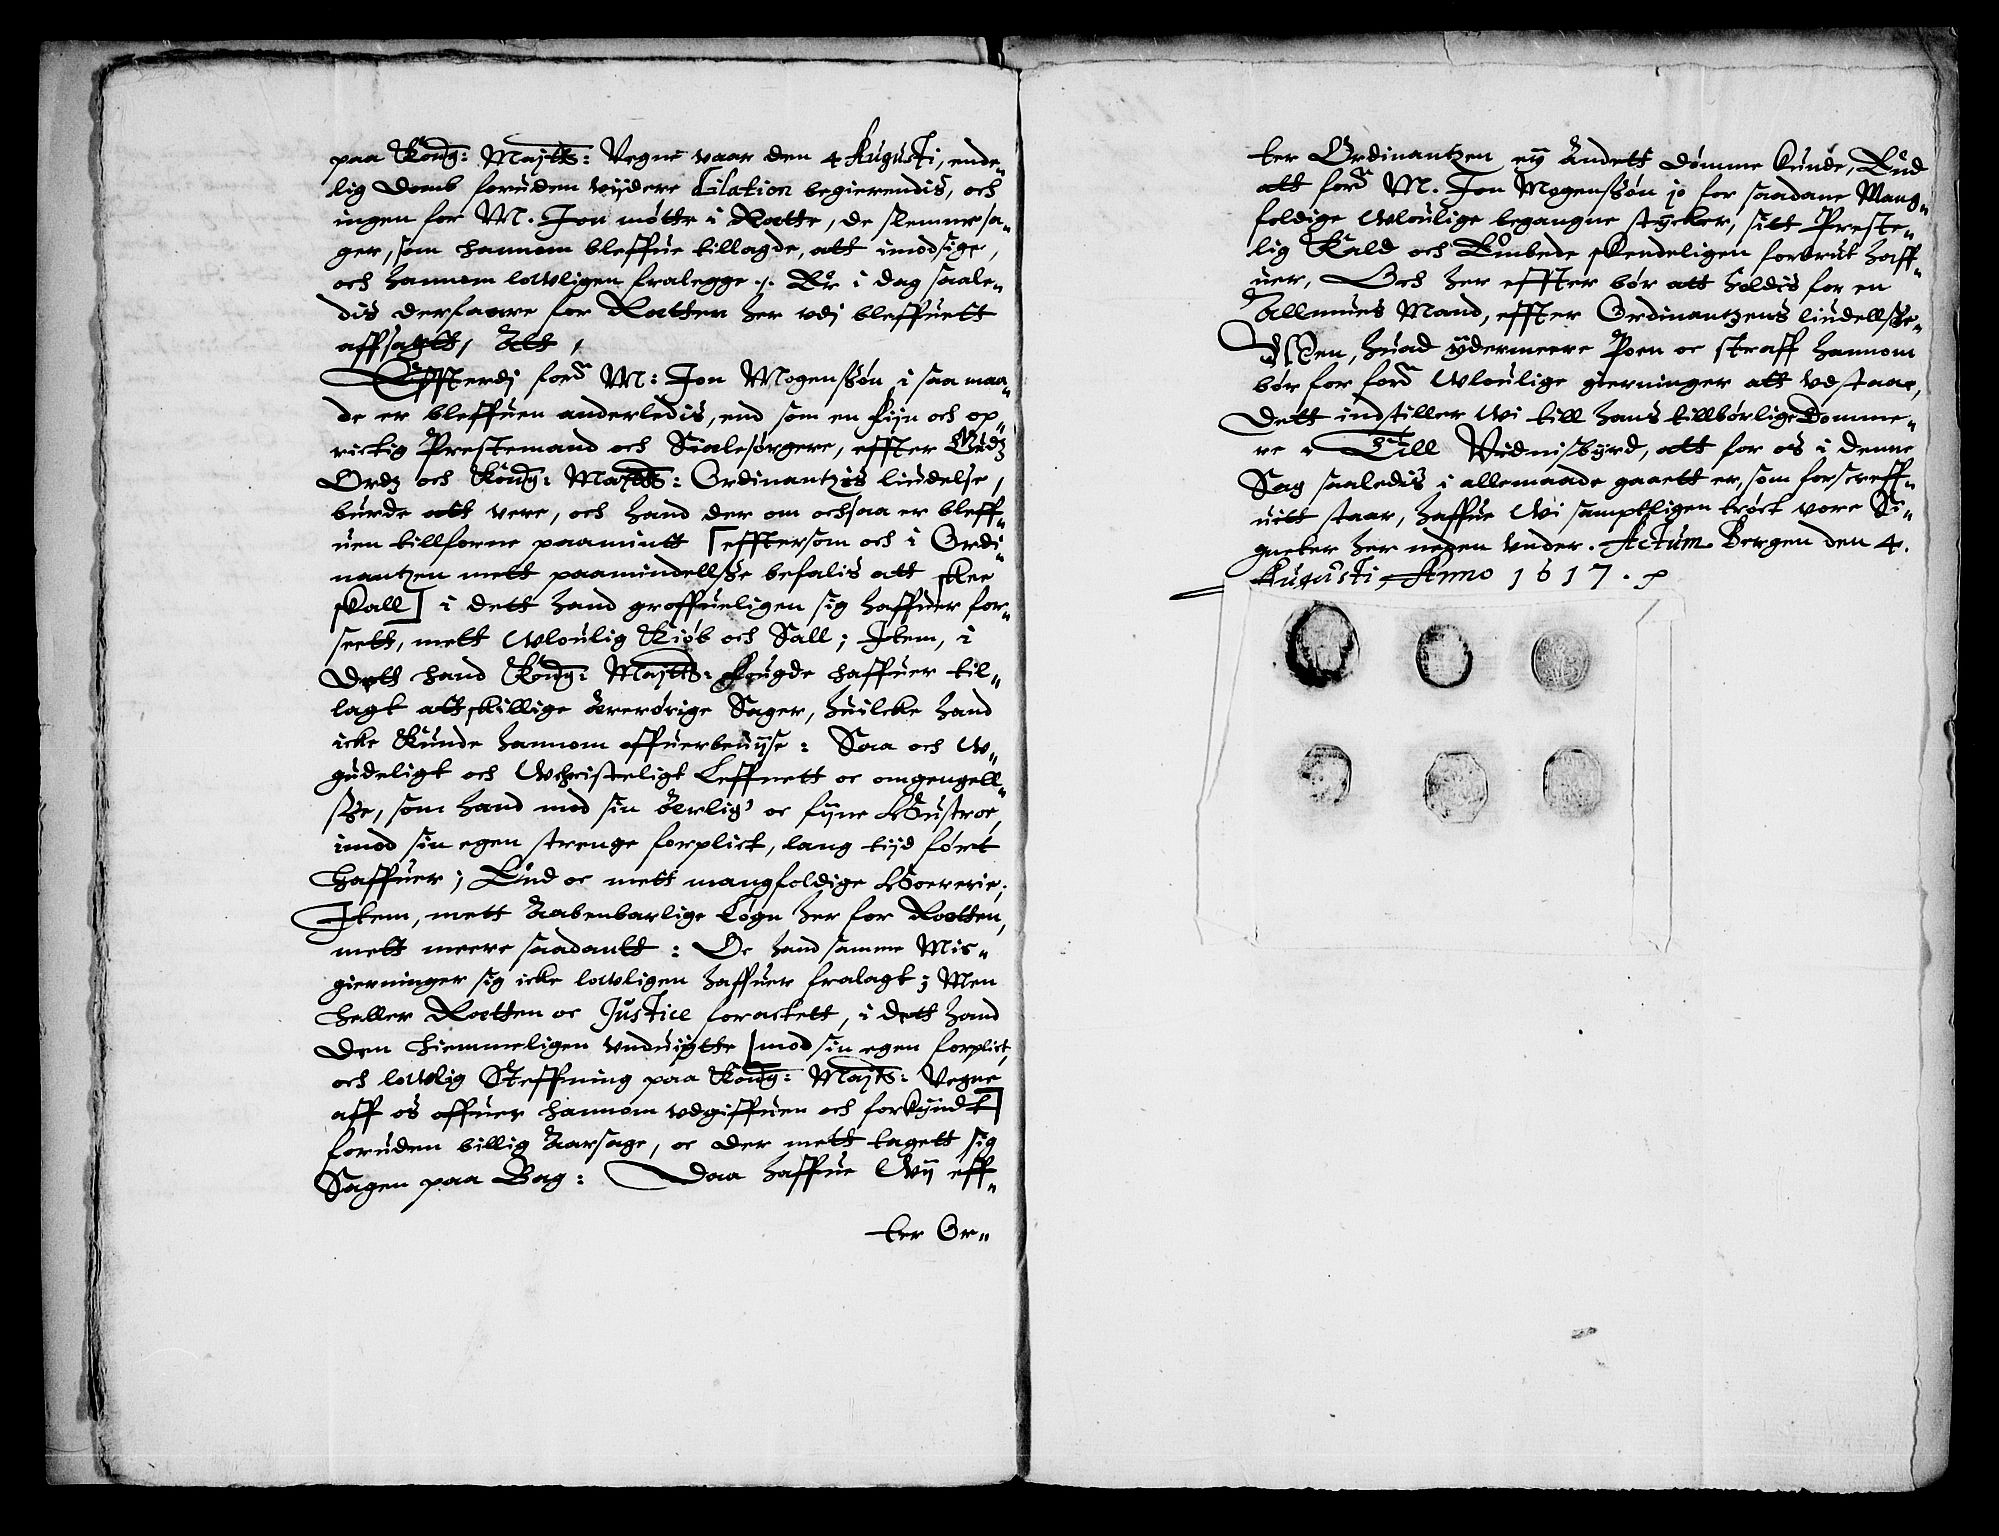 paa Kong: Maytts: Vegne vaar den 4 Augusti, ende„
lig Domb foruden vijdere Citation begierendis, och
ingen for M. Jon møtte i Rette, de slemme sa„
ger, som hannom bleffue tillagde, att imodsige,
och hannom lowligen fralegge ./. Er i dag saale„
dis derfaare for Retten her vdj bleffuett
affsagtt, Att,
Effterdj ford M: Jon Mogenssøn i saa maa„
de er bleffuen anderledis, end som en fijn och op„
rictig Prestemand och Sialesørgere, effter Gudz
Ordz och Kong: Maytts: Ordinantzis liudelse,
burde att vere, och hand der om ochsaa er bleff„
uen tillforne paamintt [efftersom och i Ordi„
nantzen mett paamindellsse befalis att skee
skall] i dett hand groffueligen sig haffuer for„
seett, mett Wloulig Kiøb och Sall; Item, i
Dett hand Kong: Maytts: fougde haffuer til„
lagt attskillige Ærerørige Sager, huilcke hand
icke Kunde hannom offuerbeuijse: Saa och W„
gudeligt och Wchristeligt Leffnett oc omgengell„
sse, som hand mod sin Ærlig oc fijne Høustroe,
imod sin egen strenge forplict, lang tijd ført
haffuer; End oc mett mangfoldige Hoererie;
Item, mett Aabenbarlige Løgn her for Retten,
mett meere saadantt: Oc hand samme Mis„
gierninger sig icke lowligen haffuer fralagt; Men
heller Retten oc Justice forachtett, i dett hand
Den hiemmeligen vnduigtte [mod sin egen forplict,
och lowlig Steffning paa Kong: Maytts: Vegne
aff os offuer hannom vdgiffuen och forkyndt]
foruden billig Aarsage, oc der mett tagett sig
Sagen paa Bag: Daa haffue Wij eff„
ter Or„
ter Ordinantzen eij Andett dømme kunde, End
att ford M. Jon Mogenssøn jo for saadane Mang„
foldige Wloulige begangne stycker, sitt Preste„
lig Kald och Embede skendeligen forbrut haff„
uer, Och her effter bør att holdis for en
Allmues Mand, effter Ordinantzens liudellsse„
Men, huad ydermeere Poen oc straff hannom
bør for ford Wloulige gierninger att vdstaae,
Dett indstiller Wi till hans tillbørlige Domme„
re. Till Vidnisbyrd, att for os i denne
Sag saaledis i allemaade gaaett er, som forscreff„
uitt staar, haffue Wi samptligen tröct vore Si„
gneter her neden vnder. Actum Bergen den 4.
Augusti, Anno 1617.